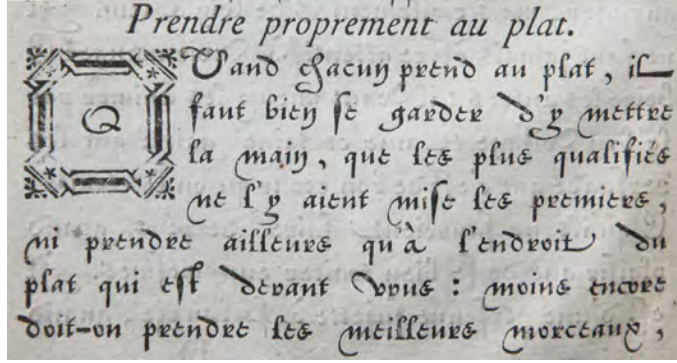 Prendre proprement au plat.
QUand chacun prend au plat, il
faut bien se garder d'y mettre
la main, que les plus qualifiés
ne l'y aient mise les premiers,
ni prendre ailleurs qu'à l'endroit du
plat qui est devant vous : moins encore
doit-on prendre les meilleurs morceaux,